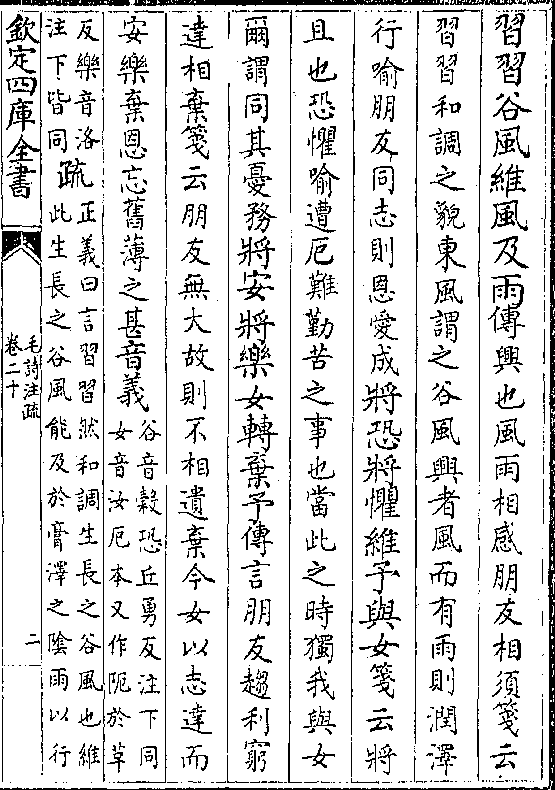 習習谷風維風及雨傳興也風雨相感朋友相須箋云
習習和調之貌東風謂之谷風興者風而有雨則潤澤
行喻朋友同志則恩愛成將恐將懼維予與女箋云將
且也恐懼喻遭厄難勤苦之事也當此之時獨我與女
爾謂同其憂務將安將樂女轉棄予傳言朋友趨利窮
達相棄箋云朋友無大故則不相遺棄今女以志達而
安樂棄恩忘舊薄之甚音義谷音穀恐丘勇反注下同
女音汝厄本又作阨於草
反樂音洛
注下皆同疏正義曰言習習然和調生長之谷風也維
此生長之谷風能及於膏澤之陰雨以行
欽定四庫全書
毛詩注疏
卷二十
二